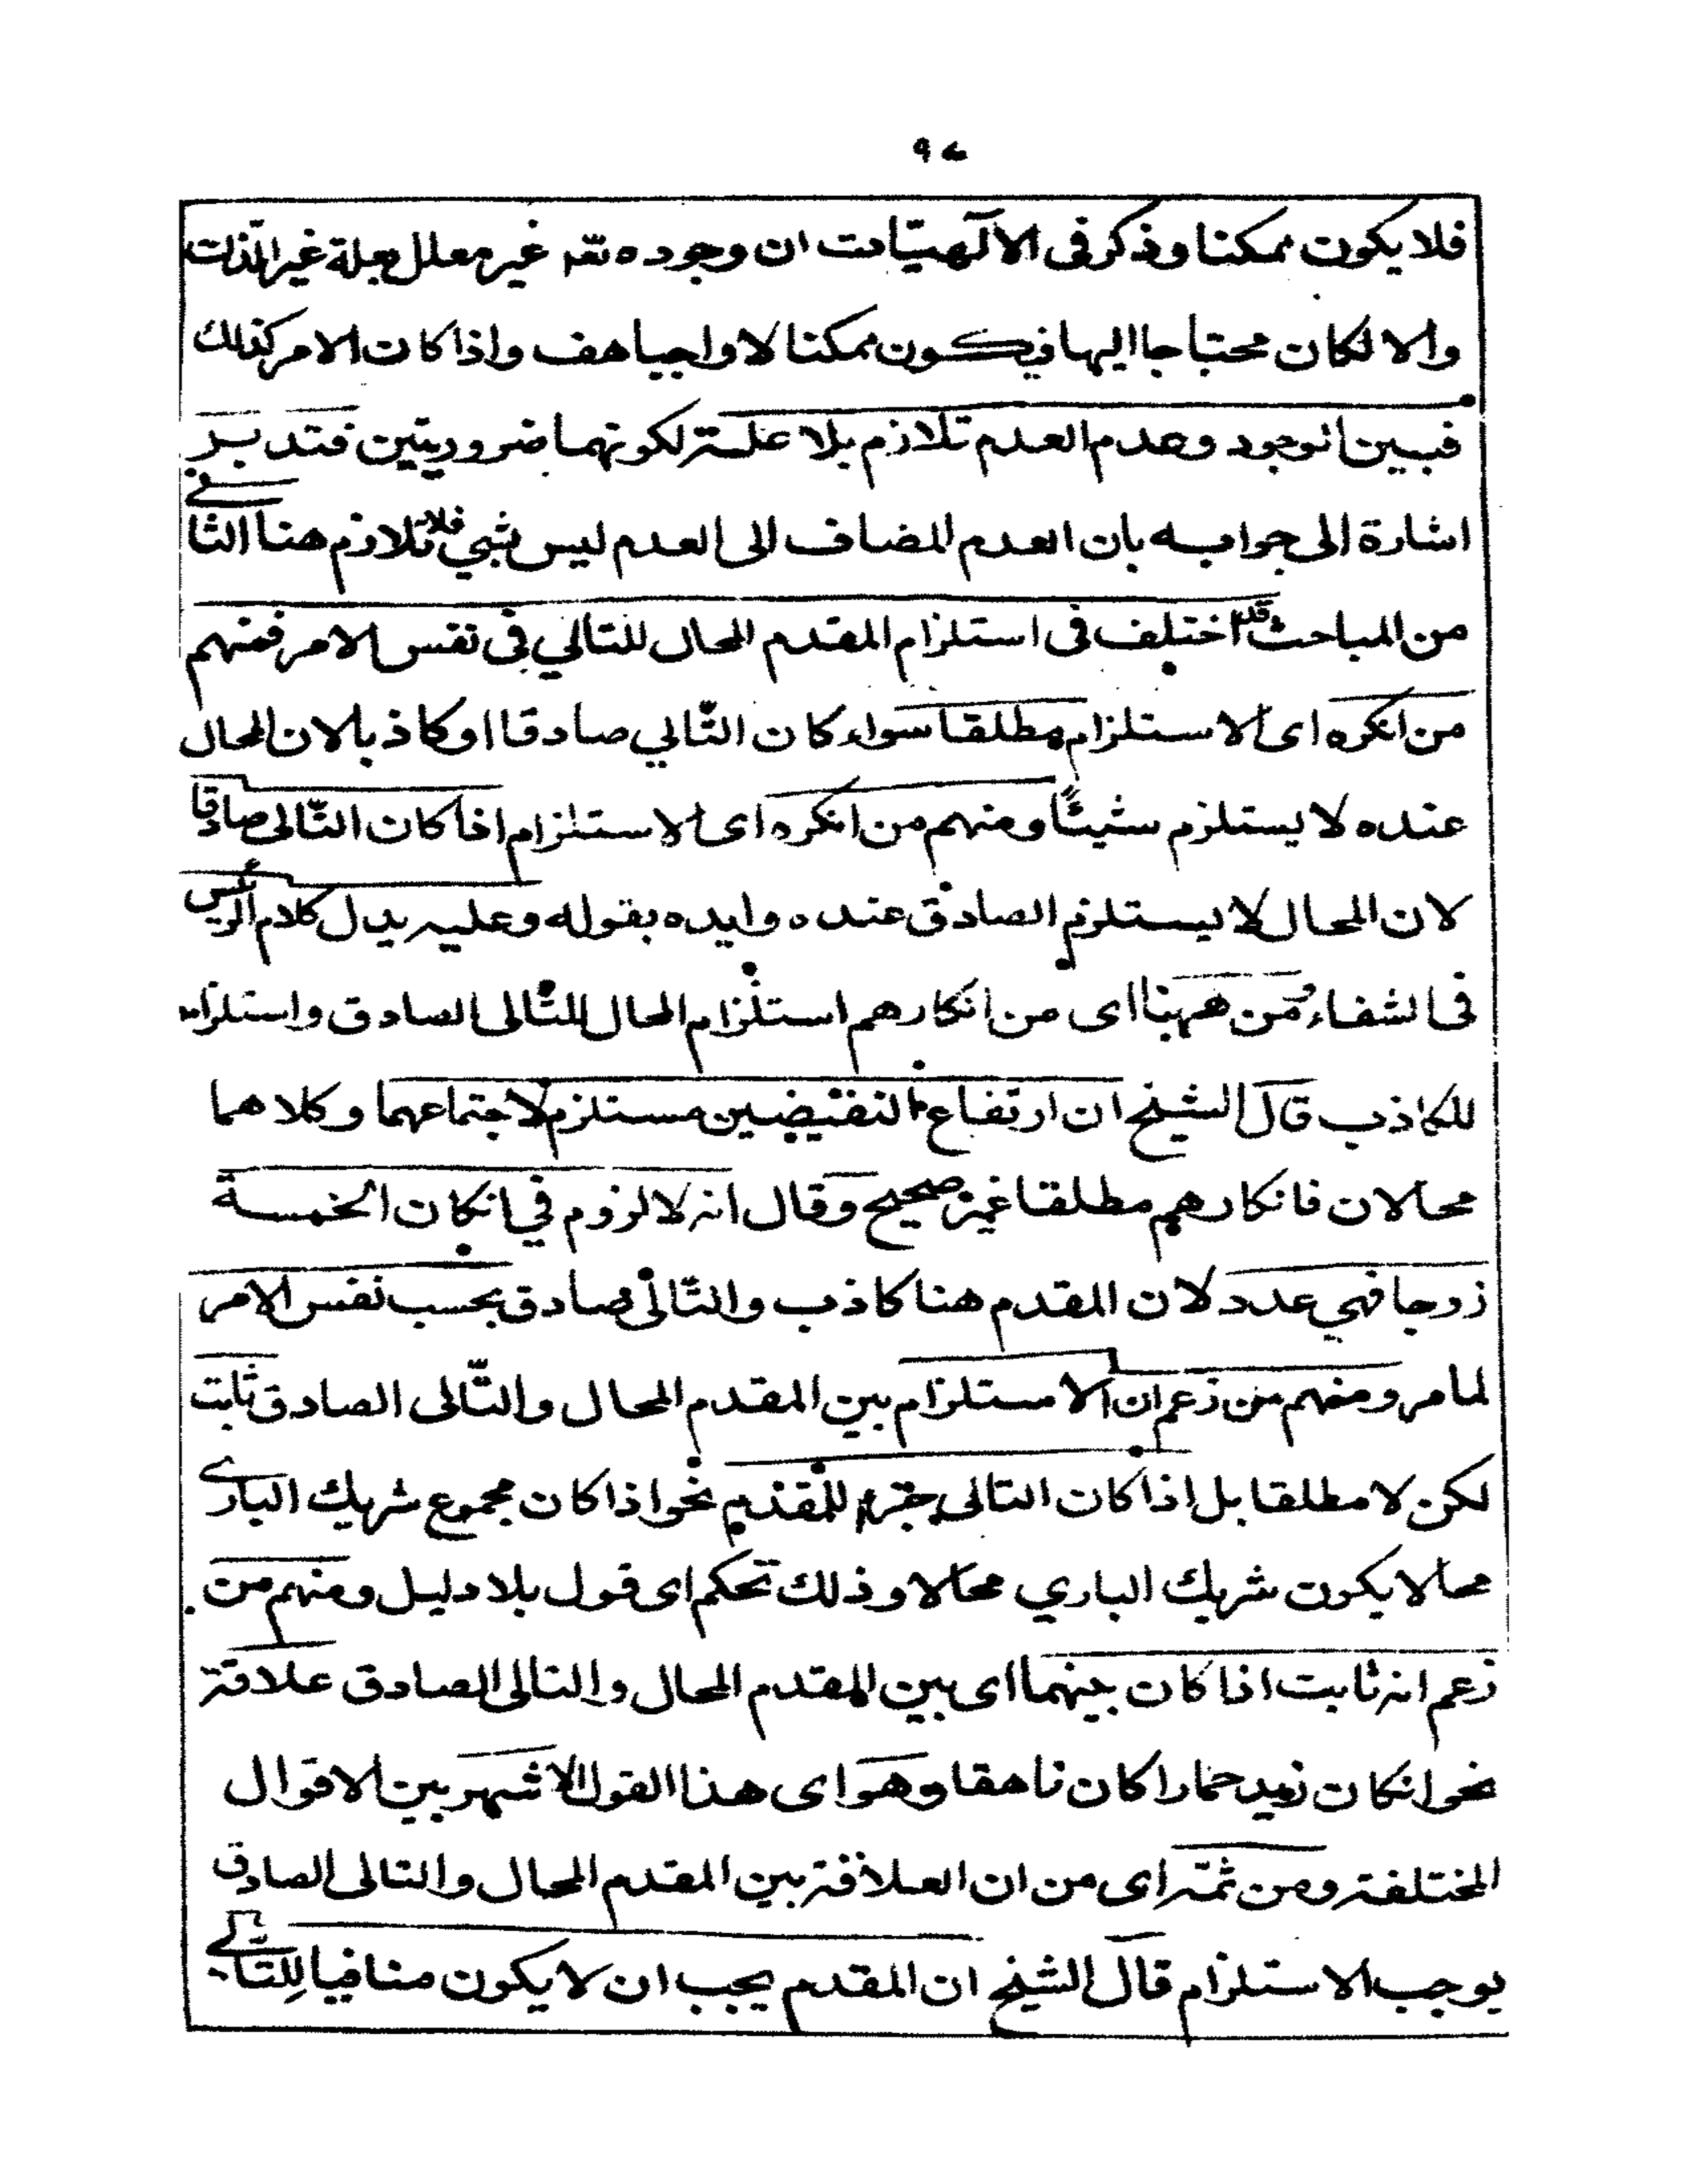 ٩٧
فلا يكون ممكنا وذكر فى الآلهيّات ان وجوده تعه غير معلل بعلة غير الذات
والا لكان محتاجا اليها فيكون ممكنا لا واجبا هف واذا كان الامر كذلك
فبين الوجود وعدم العدم تلازم بلا علة لكونهما ضروريتين فتدبر
اشارة الى جوابه بان العدم المضاف الى العدم ليس بشي فلا تلازم هنا الثانى
من المباحث قد اختلف فى استلزام المقدم المحال للتالي فى نفس الامر فمنهم
من انكره اى الاستلزام مطلقا سواء كان التّالي صادقا او كاذبا لان المحال
عنده لا يستلزم شيئًا ومنهم من انكره اى الاستلزام اذا كان التّالى صادقا
لان المحال لا يستلزم الصادق عنده وايده بقوله وعليه يدل كلام الرئيس
فى الشفاء ومن ههنا اى من انكارهم استلزام المحال للتّالى الصادق واستلزامه
للكاذب قال الشيخ ان ارتفاع النقيضين مستلزم لاجتماعهما وكلاهما
محالان فانكارهم مطلقا غير صحيح وقال انه لا لزوم في انكان الخمسة
زوجا فهي عدد لان المقدم هنا كاذب والتّالى صادق بحسب نفس الامر
لما مر ومنهم من زعم ان الاستلزام بين المقدم المحال والتّالى الصادق ثابت
لكن لا مطلقا بل اذا كان التالى جزء للمقدم نحو اذا كان مجموع شريك البارى
محالا يكون شريك الباري محالا وذلك تحكم اى قول بلا دليل ومنهم من
زعم انه ثابت اذا كان بينهما اى بين المقدم المحال والتالى الصادق علاقة
نحو انكان زيد حمارا كان ناهقا وهو اى هذا القول الاشهر بين الاقوال
المختلفة ومن ثمّه اى من ان العلاقة بين المقدم المحال والتالى الصادق
يوجب الاستلزام قال الشيخ ان المقدم يجب ان لا يكون منافيا للتّالى